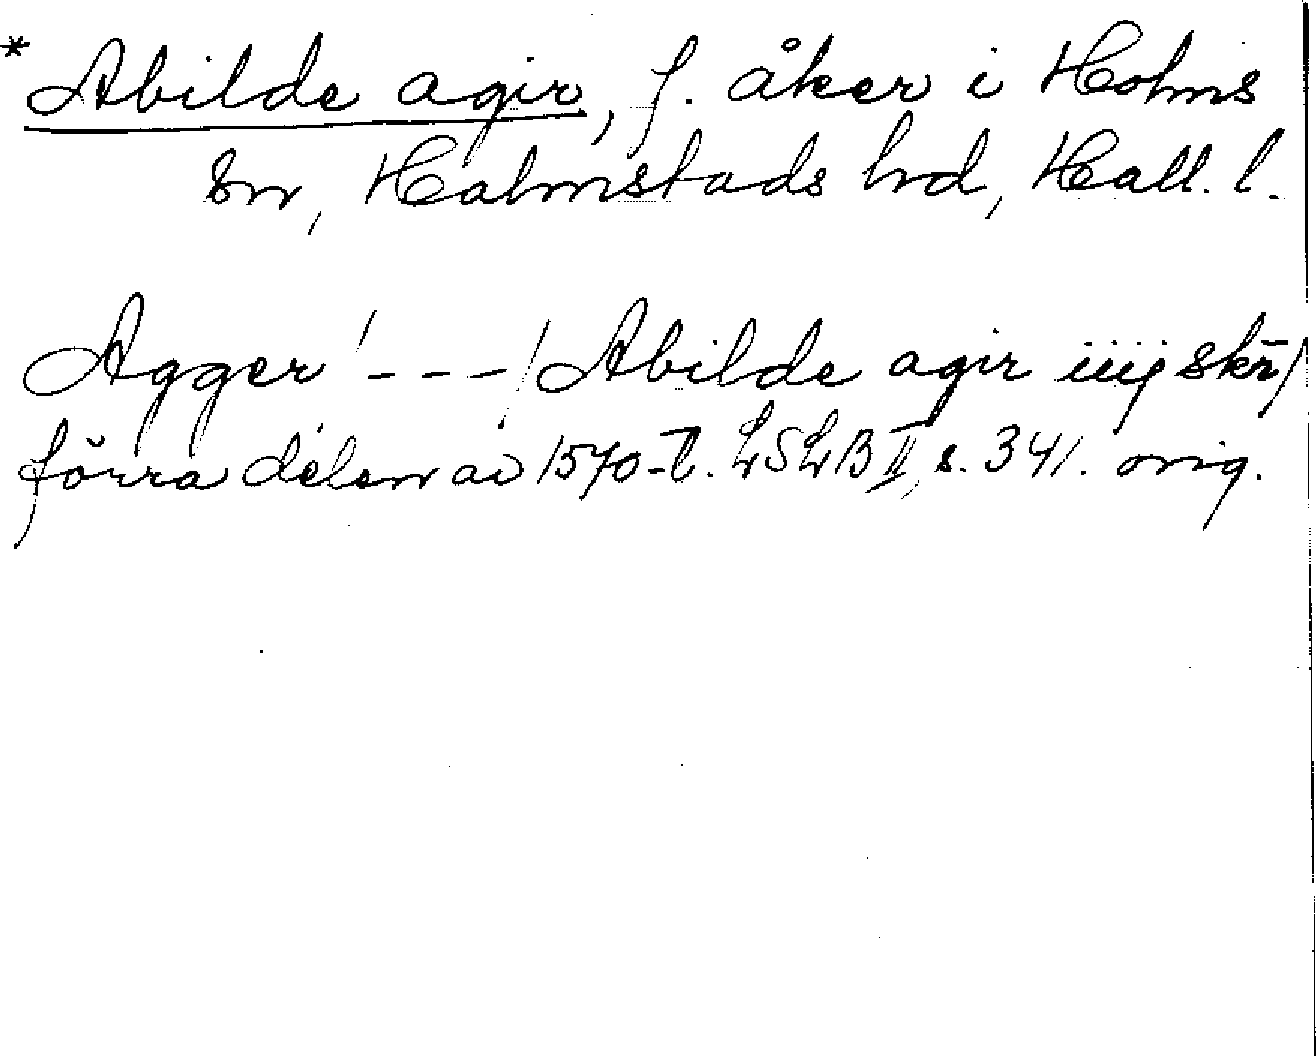 * Abilde agir, f. åker i Holms
sn, Halmstads hd, Hall. l.
Agger / --- / Abilde agir iiij skr̄ /
förra delen av 1570-t. LSLB II, s. 341. orig.